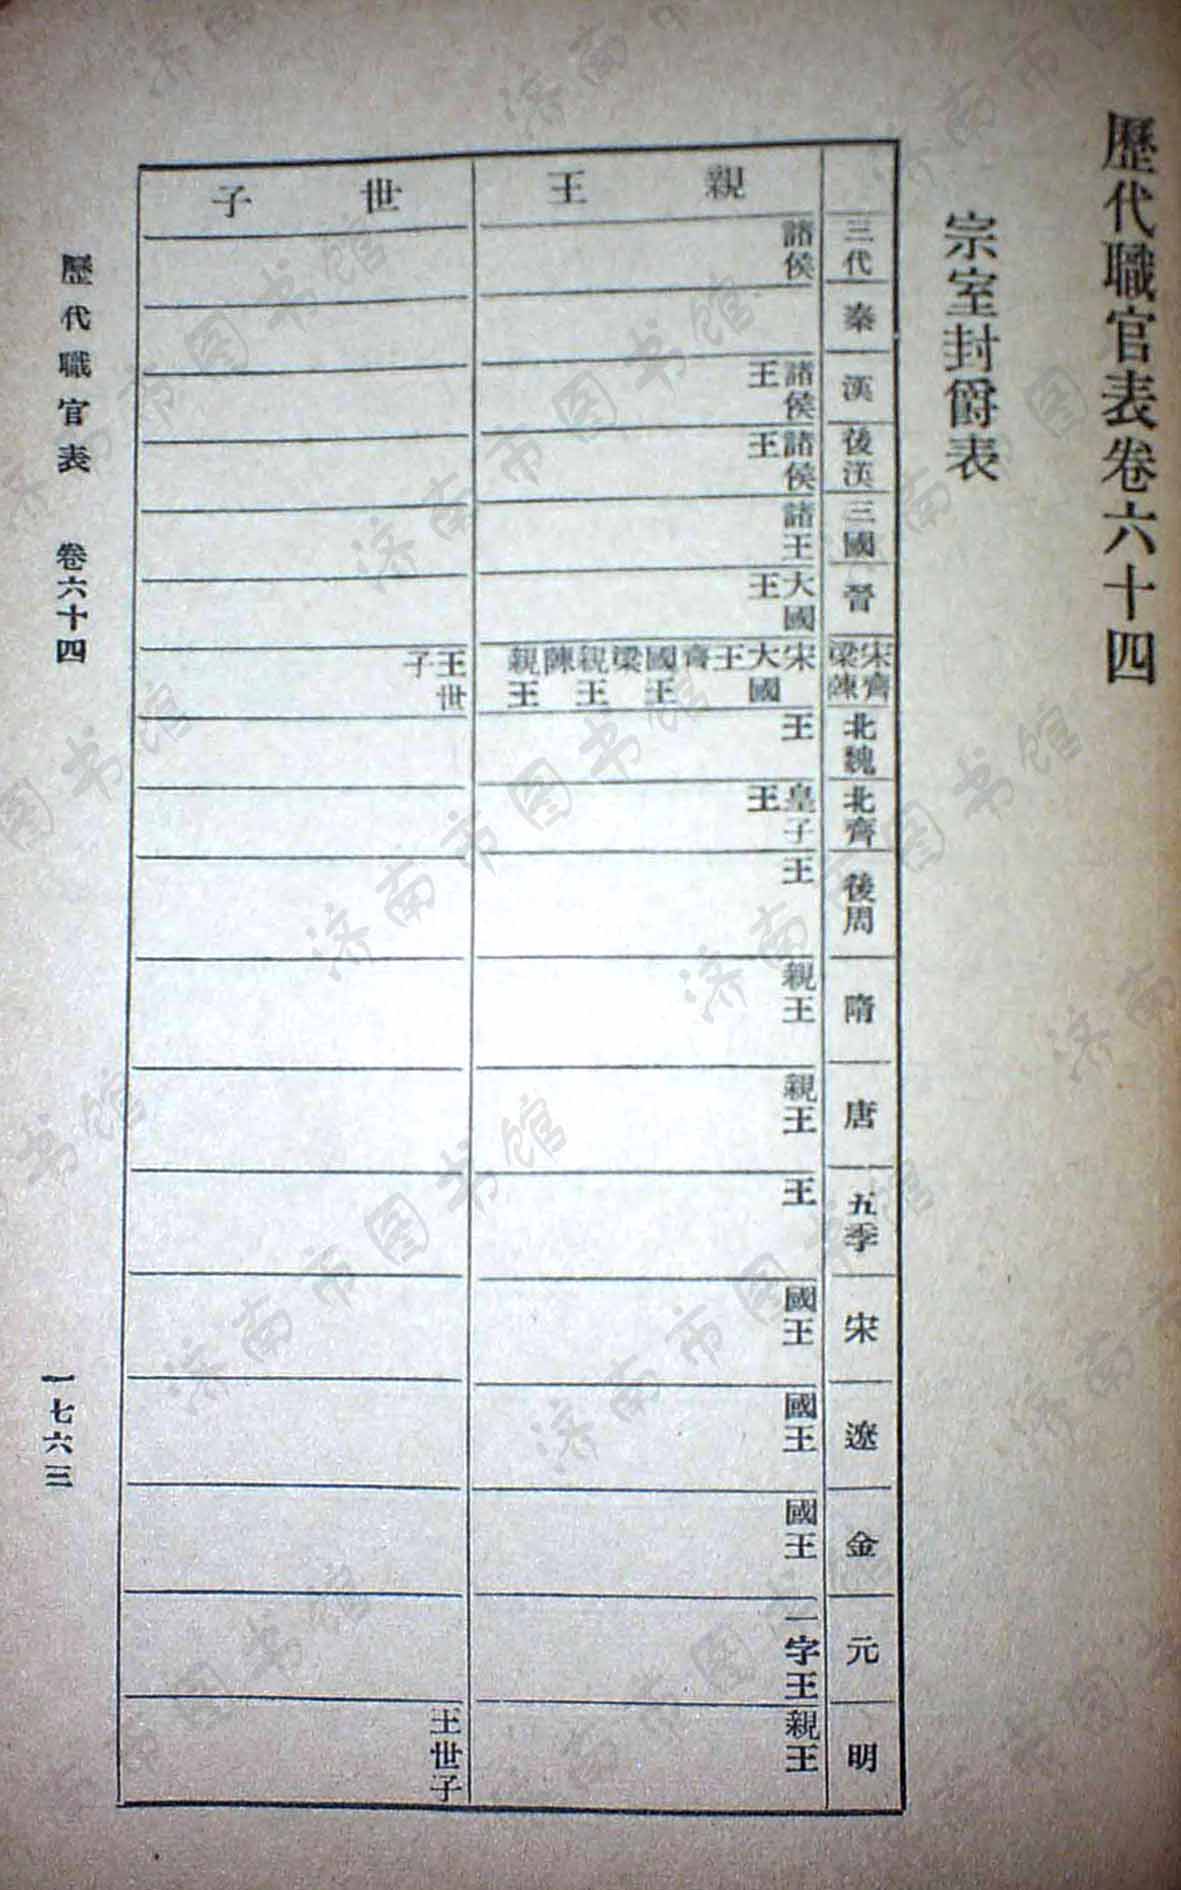 歷代職官表卷六十四
宗室封爵表
三代
秦
漢
後漢
三國
晉
宋齊
梁陳
北魏
北齊
後周
隋
唐
五季
宋
遼
金
元
明
親王
諸侯
諸侯
王
諸侯
王
諸王
大國
王
宋
大國
王
齊
國王
梁
親王
陳
親王
王
皇子
王
王
親王
親王
王
國王
國王
國王
一字王
親王
世子
王世
子
王世子
歷代職官表 卷六十四
一七六三
济南市图书馆